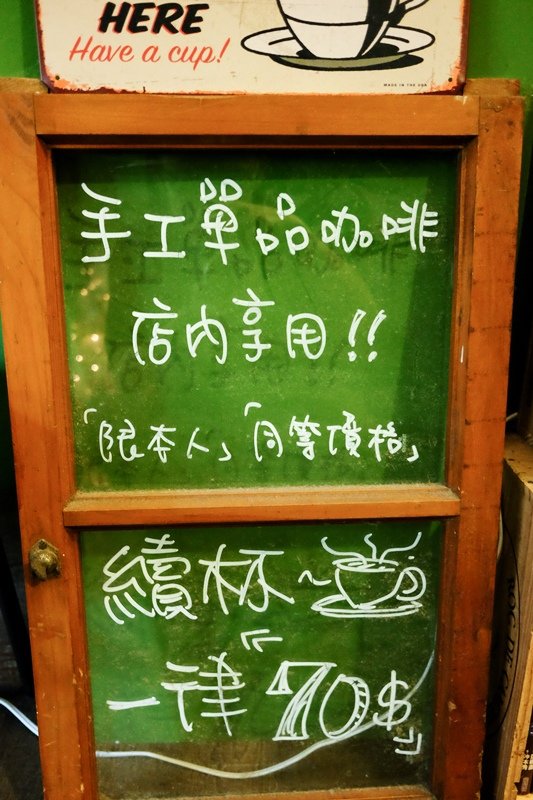 HERE
Have a cup!
MADE IN THE USA
手工單品咖啡
店內享用!!
「限本人」「同等價格」
續杯~
《一律70$》